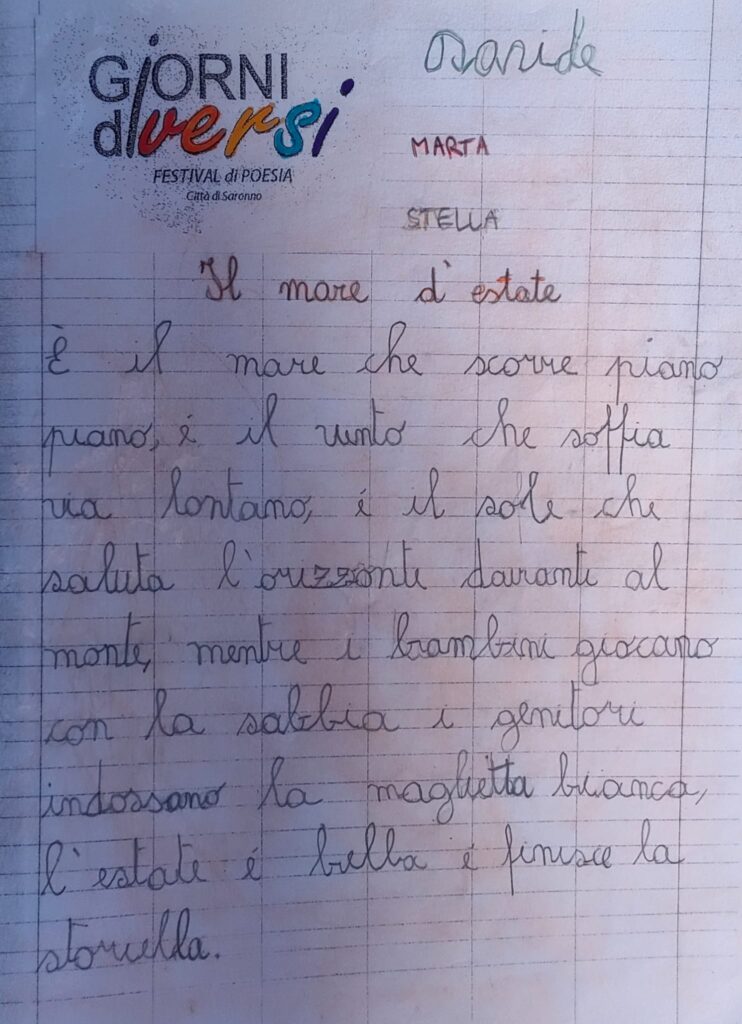 GiORNI
diversi
FESTIVAL di POESIA
Città di Saronno
Davide
MARTA
STELLA
Il mare d'estate
È il mare che scorre piano
piano, é il vento che soffia
via lontano, é il sole che
saluta l'orizzonte davanti al
monte, mentre i bambini giocano
con la sabbia i genitori
indossano la maglietta bianca,
l'estate é bella é finisce la
storiella.